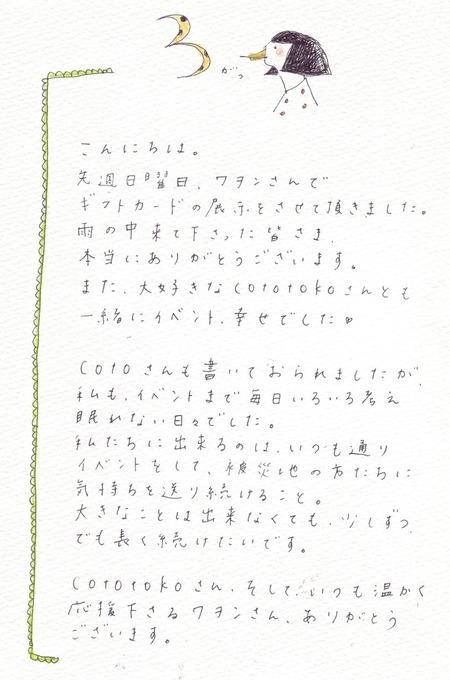 3がつ
こんにちは。
先週日曜日、ワヲンさんで
ギフトカードの展示をさせて頂きました。
雨の中来て下さった皆さま、
本当にありがとうございます。
また、大好きなcototokoさんとも
一緒にイベント、幸せでした♥
cotoさんも書いておられましたが、
私も、イベントまで毎日いろいろ考え
眠れない日々でした。
私たちに出来るのは、いつも通り
イベントをして、被災地の方たちに
気持ちを送り続けること。
大きなことは出来なくても、少しずつ
でも長く続けたいです。
cototokoさん、そして、いつも温かく
応援下さるワヲンさん、ありがとう
ございます。